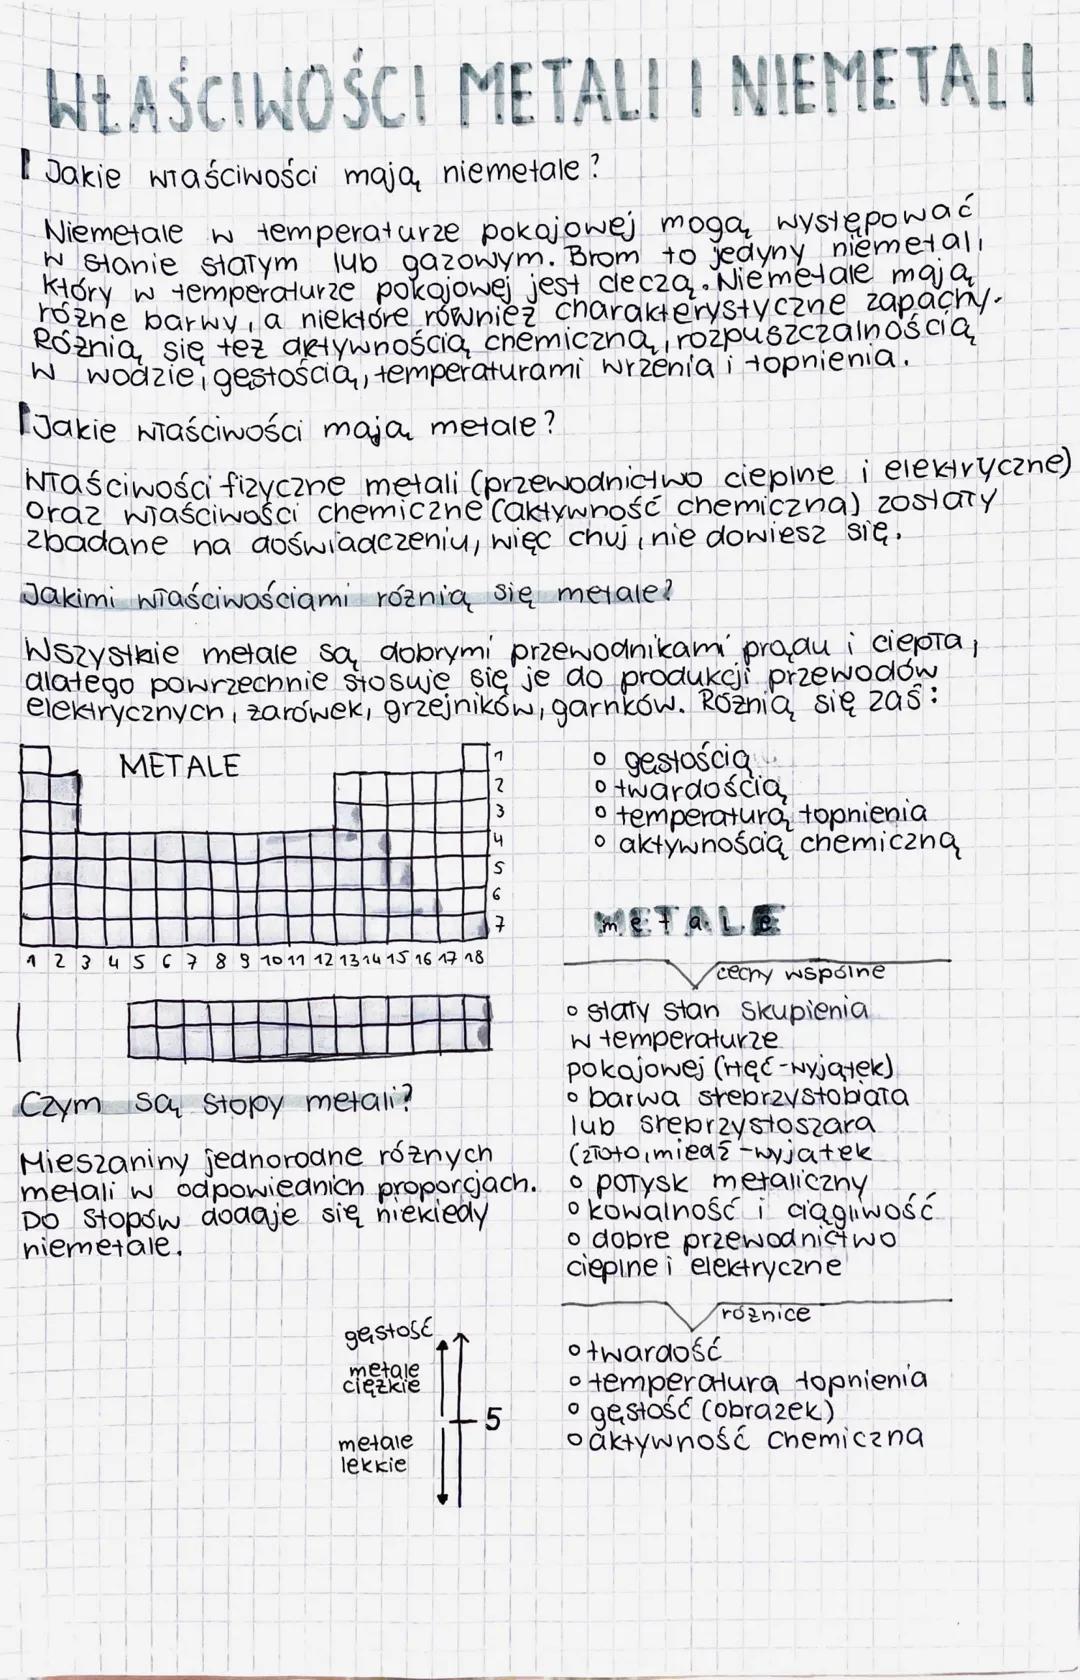 WŁAŚCIWOŚCI METALI I NIEMETALI
Jakie właściwości mają niemetale?
Niemetale w temperaturze pokojowej mogą występować
w stanie stałym lub gazowym. Brom to jedyny niemetal,
który w temperaturze pokojowej jest cieczą. Niemetale mają
różne barwy, a niektóre również charakterystyczne zapachy.
Różnią się też aktywnością chemiczną, rozpuszczalnością
w wodzie, gęstością, temperaturami wrzenia i topnienia.
Jakie właściwości mają metale?
Właściwości fizyczne metali (przewodnictwo cieplne i elektryczne)
oraz właściwości chemiczne (aktywność chemiczna) zostały
zbadane na doświadczeniu, więc chuj, nie dowiesz się.
Jakimi właściwościami różnią się metale?
Wszystkie metale są dobrymi przewodnikami prądu i ciepła,
dlatego powrzechnie stosuje się je do produkcji przewodów
elektrycznych, żarówek, grzejników, garnków. Różnią się zaś:
METALE
1
2
3
4
5
6
7
1 2 3 4 5 6 7 8 9 10 11 12 13 14 15 16 17 18
o gęstością
o twardością
o temperaturą topnienia
o aktywnością chemiczną
METALE
cechy wspólne
o stały stan skupienia
w temperaturze
pokojowej (rtęć-wyjątek)
o barwa srebrzystobiała
lub srebrzystoszara
(złoto, miedź-wyjątek
o połysk metaliczny
o kowalność i ciągliwość
o dobre przewodnictwo
cieplne i elektryczne
różnice
o twardość
o temperatura topnienia
o gęstość (obrazek)
o aktywność chemiczna
Czym są stopy metali?
Mieszaniny jednorodne różnych
metali w odpowiednich proporcjach.
Do stopów dodaje się niekiedy
niemetale.
gęstość
metale
ciężkie
5
metale
lekkie